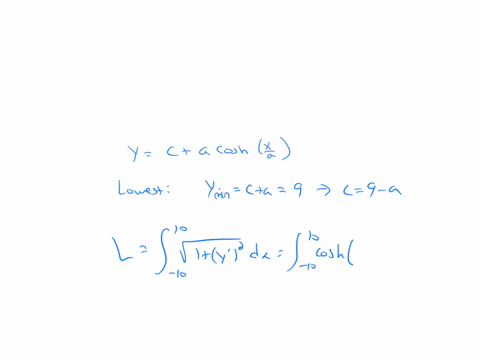 y = c + a cosh (x/a)
Lowest: y_min = c+a = 9 → c = 9-a
L = ∫_{-10}^{10} √(1+(y')²) dx = ∫_{-10}^{10} cosh(